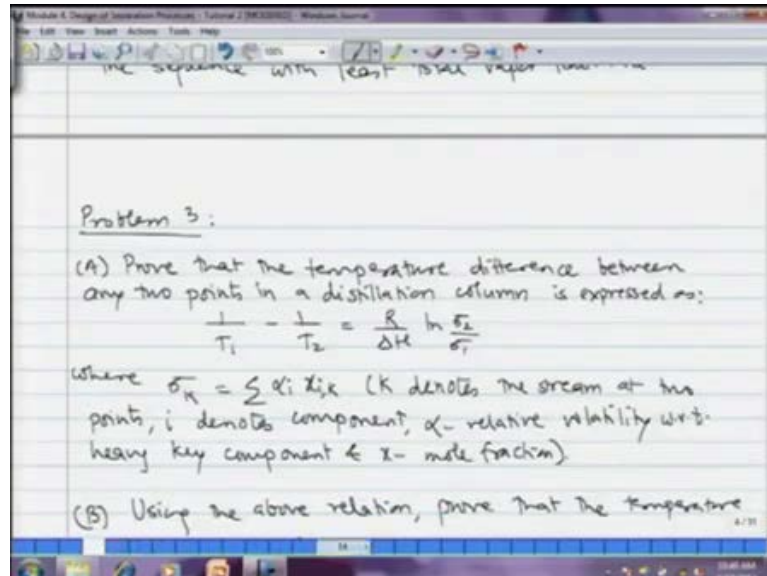 Module 4. Design of Separation Processes - Tutorial 2 - Windows Journal
File Edit View Insert Actions Tools Help
the sequence with least total vapor
Problem 3:
(A) Prove that the temperature difference between
any two points in a distillation column is expressed as:
1/T₁ - 1/T₂ = R/ΔH ln σ₂/σ₁
where σ_K = Σ αi xi,K (K denotes the stream at two
points, i denotes component, α- relative volatility w.r.t.
heavy key component & x- mole fraction)
(B) Using the above relation, prove that the temperature